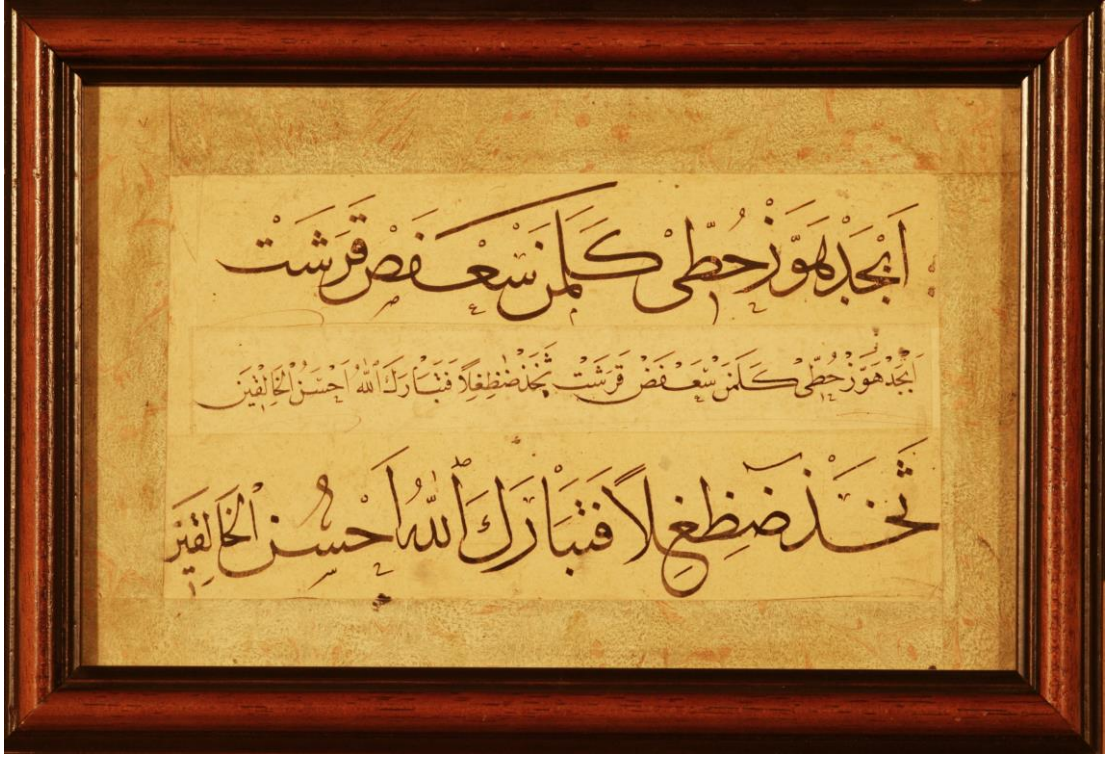 اَبْجَدْ هَوَّزْ حُطّٖى كَلَمَنْ سَعْفَصْ قَرَشَتْ
اَبْجَدْ هَوَّزْ حُطّٖى كَلَمَنْ سَعْفَصْ قَرَشَتْ ثَخَذْ ضَظِغِلاً فَتَبَارَكَ اللّٰهُ اَحْسَنُ الْخَالِقٖينَ
ثَخَذْ ضَظِغِلاً فَتَبَارَكَ اللّٰهُ اَحْسَنُ الْخَالِقٖينَ